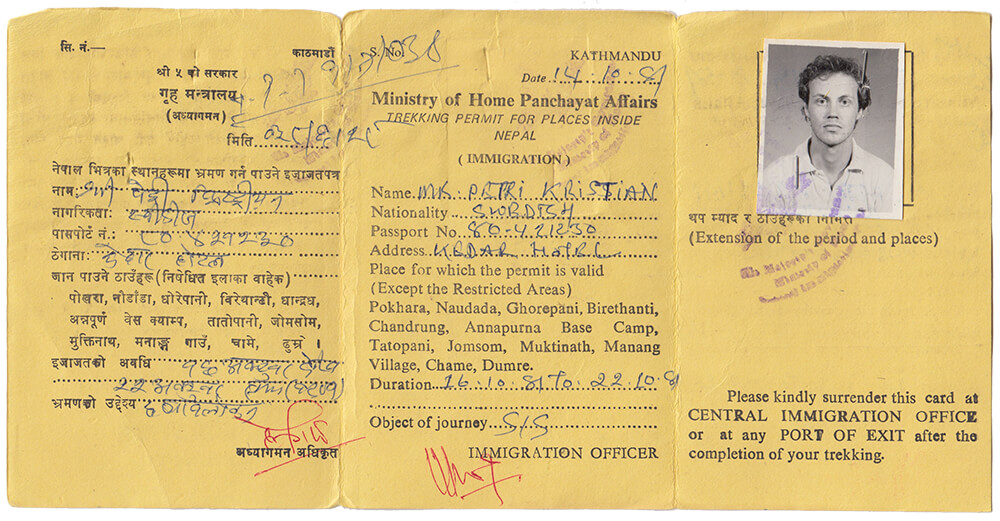 सि. नं.—
काठमाडौं
श्री ५ को सरकार
गृह मन्त्रालय
(अध्यागमन)
मिति
नेपाल भित्रका स्थानहरूमा भ्रमण गर्न पाउने इजाजतपत्र
नाम: श्री पेट्री क्रिष्टियन
नागरिकता: स्वीडीस
पासपोर्ट नं.: ८० ४२१२३०
ठेगाना: केदार होटल
जान पाउने ठाउँहरू (निषेधित इलाका वाहेक)
पोखरा, नौडाँडा, घोरेपानी, विरेथान्टी, घान्द्रुङ,
अन्नपूर्ण वेस क्याम्प, तातोपानी, जोमसोम,
मुक्तिनाथ, मनाङ्ग गाउँ, चामे, डुम्रे ।
इजाजतको अवधि १६ अक्टुवर देखि
२२ अक्टुवर
भ्रमणको उद्देश्य
अध्यागमन अधिकृत
S. No.
KATHMANDU
Date 14.10.81
Ministry of Home Panchayat Affairs
TREKKING PERMIT FOR PLACES INSIDE
NEPAL
(IMMIGRATION)
Name MR. PETRI KRISTIAN
Nationality SWEDISH
Passport No. 80-421230
Address KEDAR HOTEL
Place for which the permit is valid
(Except the Restricted Areas)
Pokhara, Naudada, Ghorepani, Birethanti,
Chandrung, Annapurna Base Camp,
Tatopani, Jomsom, Muktinath, Manang
Village, Chame, Dumre.
Duration 16.10.81 TO 22.10.81
Object of journey S/S
IMMIGRATION OFFICER
थप म्याद र ठाउँहरूको निमित्त
(Extension of the period and places)
His Majesty's
Ministry of
Please kindly surrender this card at
CENTRAL IMMIGRATION OFFICE
or at any PORT OF EXIT after the
completion of your trekking.